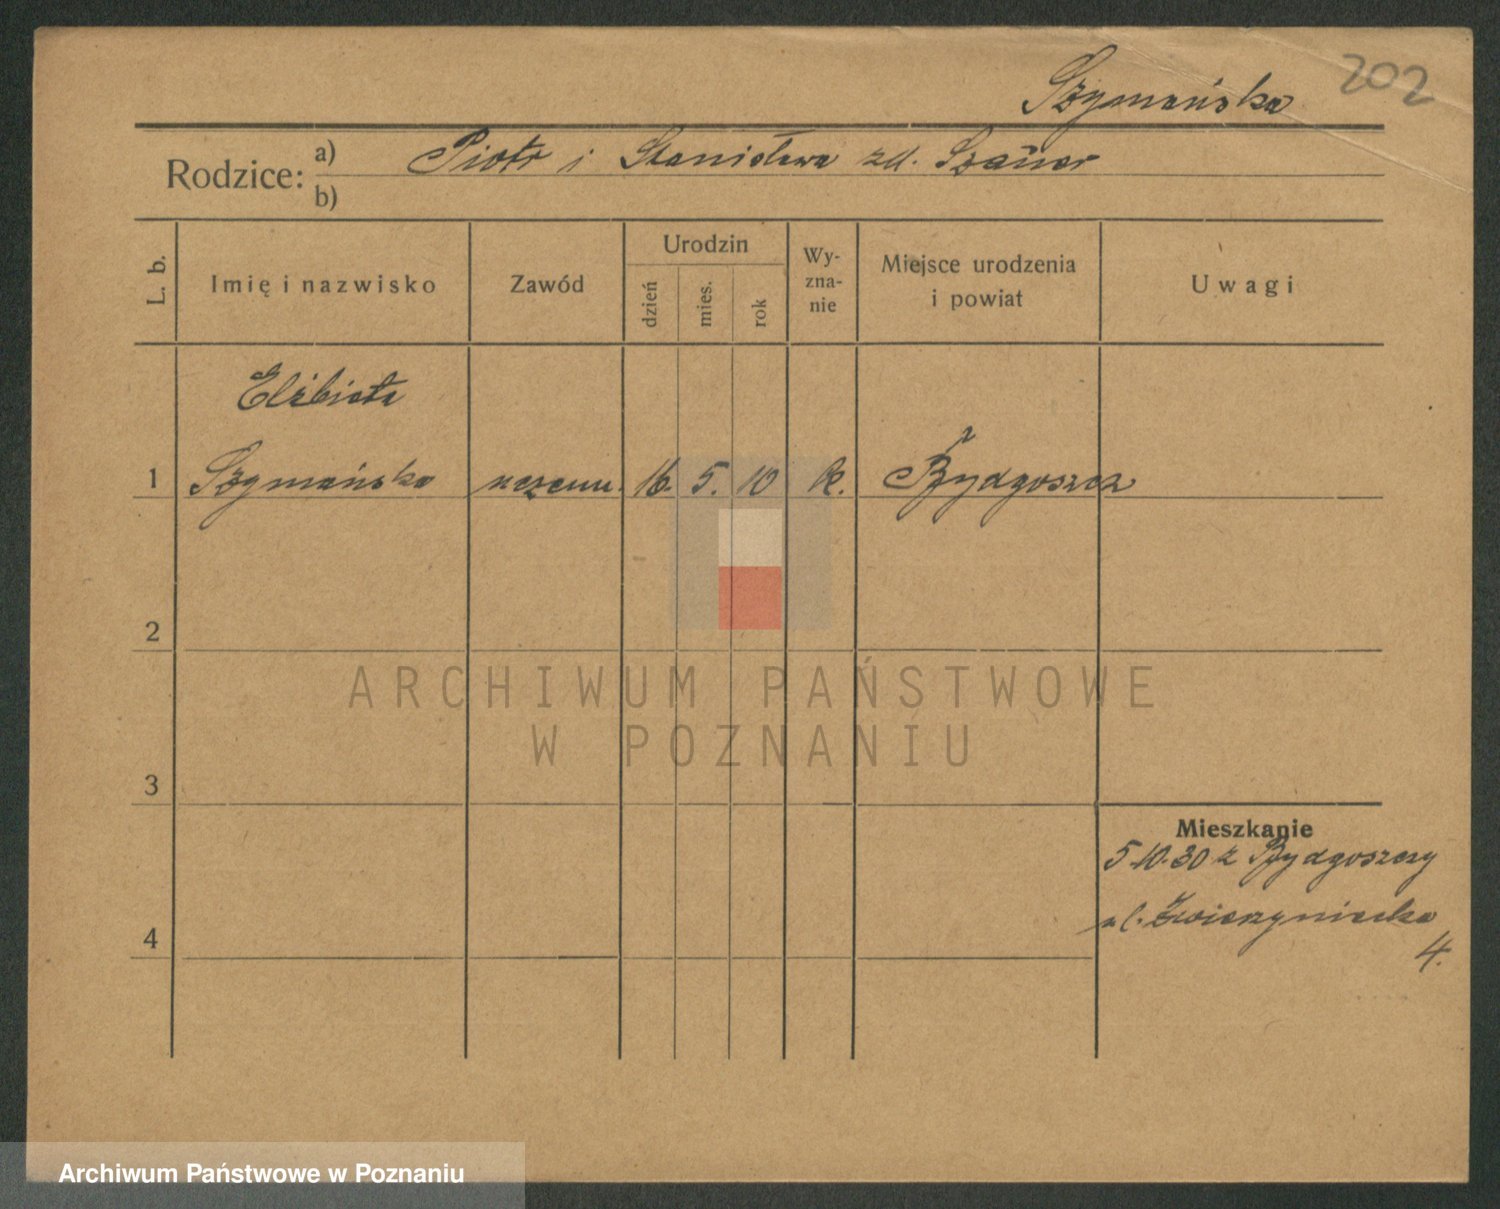 Szymańska
202
Rodzice:
a) Piotr i Stanisława zd.
b)
L. b.
Imię i nazwisko
Zawód
Urodzin
dzień
mies.
rok
Wy-
zna-
nie
Miejsce urodzenia
i powiat
Uwagi
Elżbieta
1 Szymańska 16. 5. 10 k. Bydgoszcz
2
3
4
Mieszkanie
5.10.30 z Bydgoszczy
ul. Zwierzyniecka
4.
ARCHIWUM PAŃSTWOWE
W POZNANIU
Archiwum Państwowe w Poznaniu